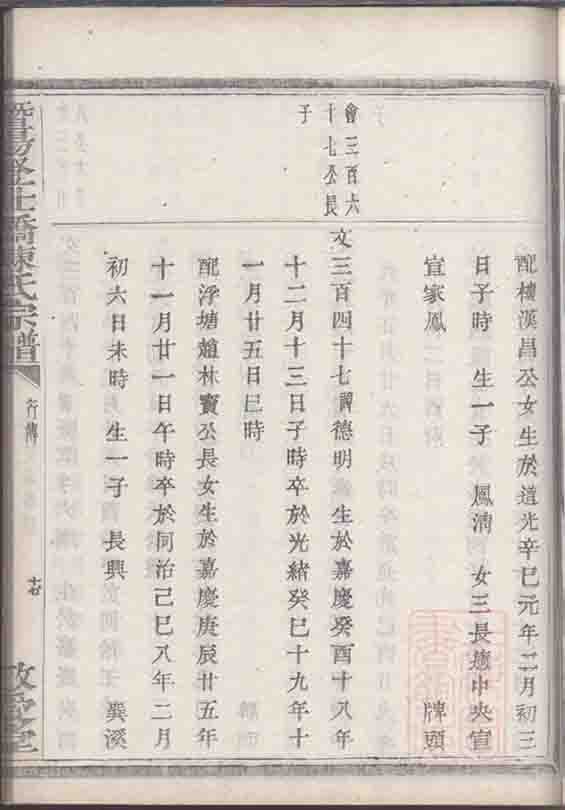 配樓漢昌公女生於道光辛巳元年二月初三
日子時 生一子 鳳淸 女三長適中央宣 牌頭
宣家鳳
會三百六
十七公長
子
文三百四十七諱德明 生於嘉慶癸酉十八年
十二月十三日子時卒於光緒癸巳十九年十
一月廿五日巳時
配浮塘趙林寶公長女生於嘉慶庚辰廿五年
十一月廿一日午時卒於同治己巳八年二月
初六日未時 生一子 長興 巽溪
暨陽 橋陳氏宗譜
行傳
敬愛堂